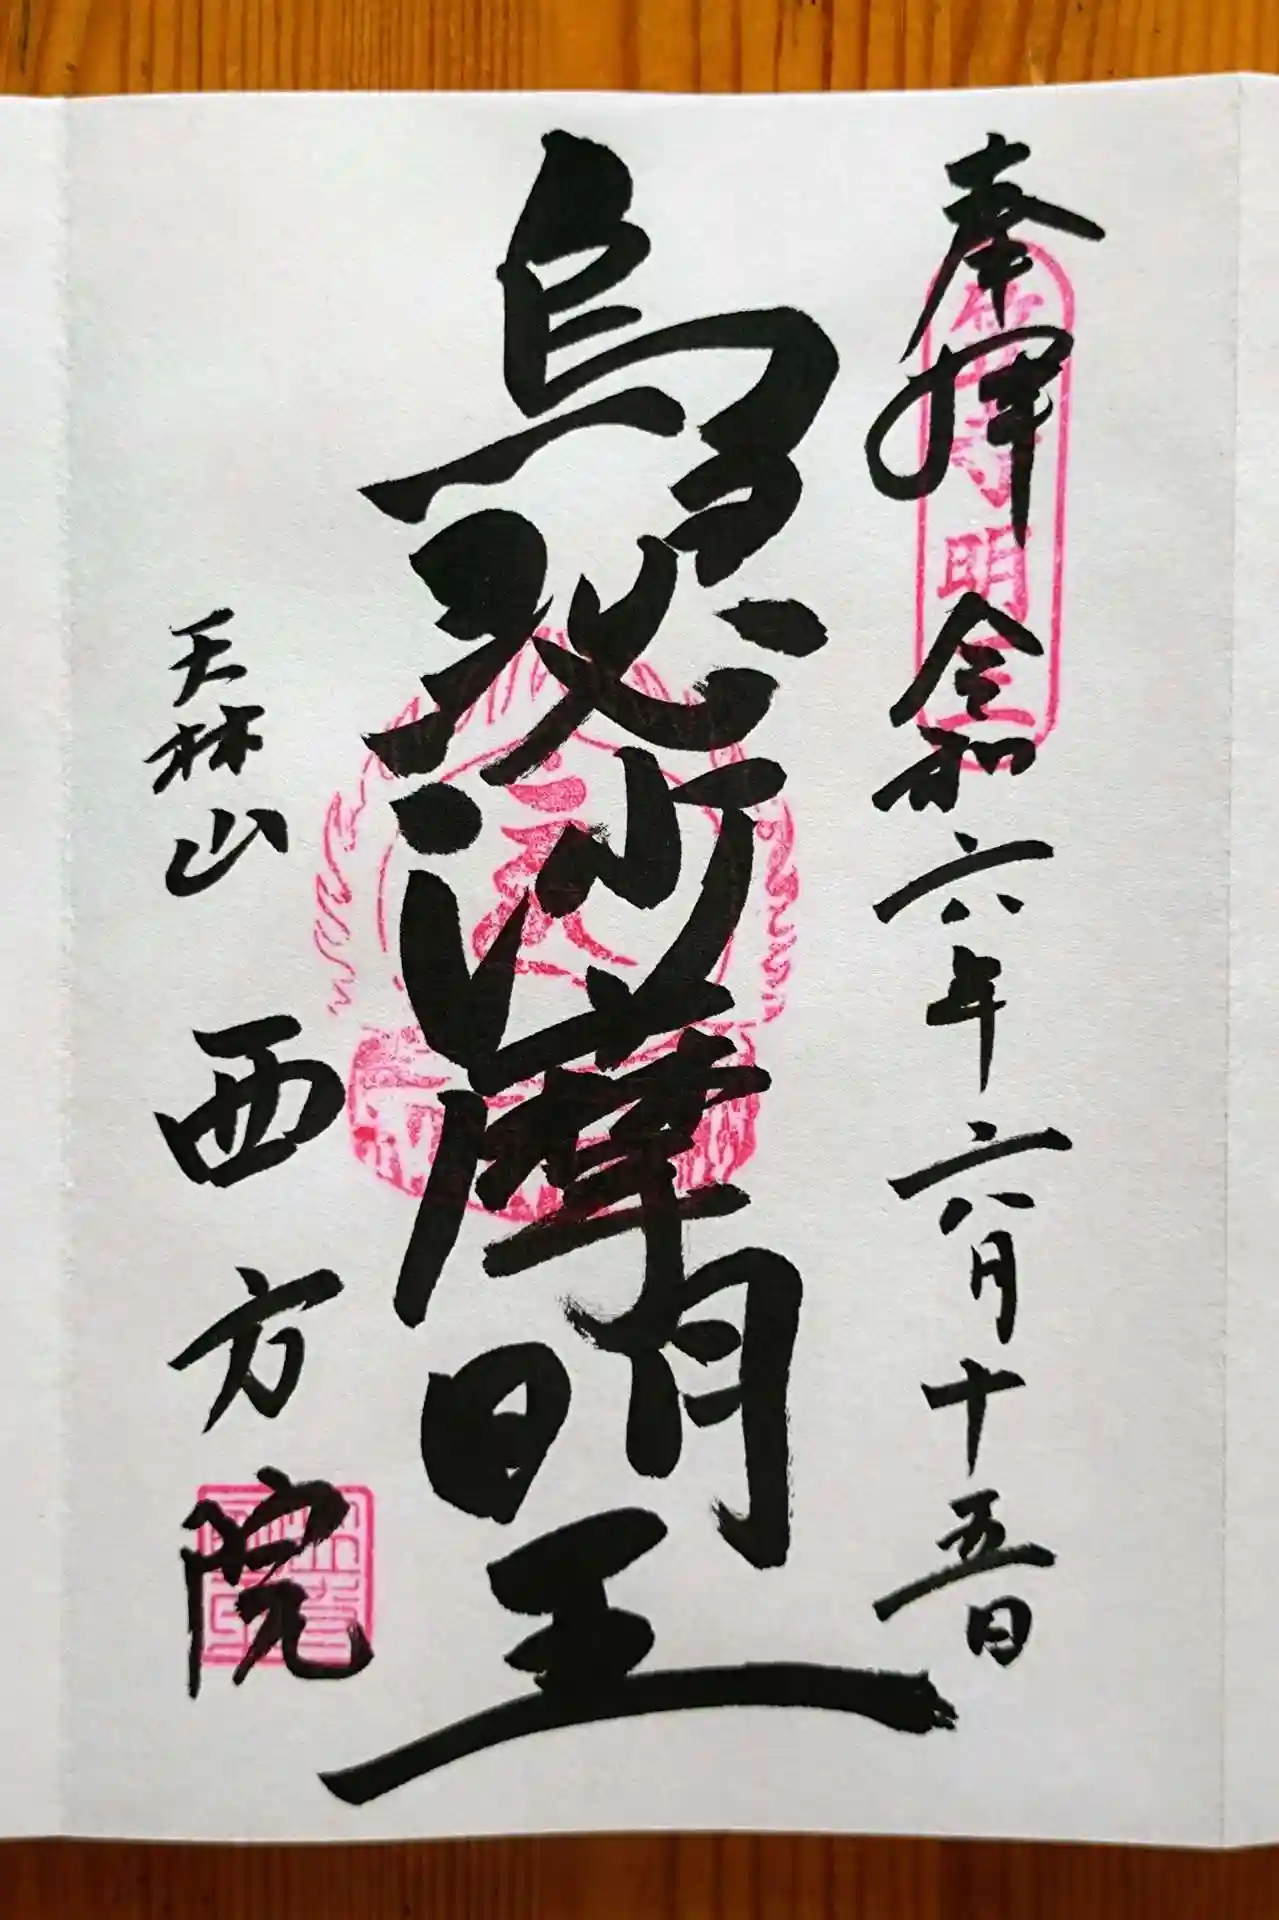 奉拝 令和六年六月十五日
笠寺明王
烏瑟沙摩明王
天林山 西方院